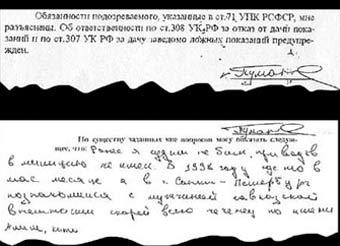 Обязанности подозреваемого, указанные в ст.71 УПК РСФСР, мне
разъяснены. Об ответственности по ст.308 УК РФ за отказ от дачи пока-
заний и по ст.307 УК РФ за дачу заведомо ложных показаний предупре-
жден.
По существу заданных мне вопросов могу показать следую-
щее, что Ранее я судим не был, приводов
в милицию не имел. В 1996 году где-то в
мае месяце я в г. Санкт-Петербург
познакомился с мужчиной кавказской
внешности скорей всего чеченец по имени